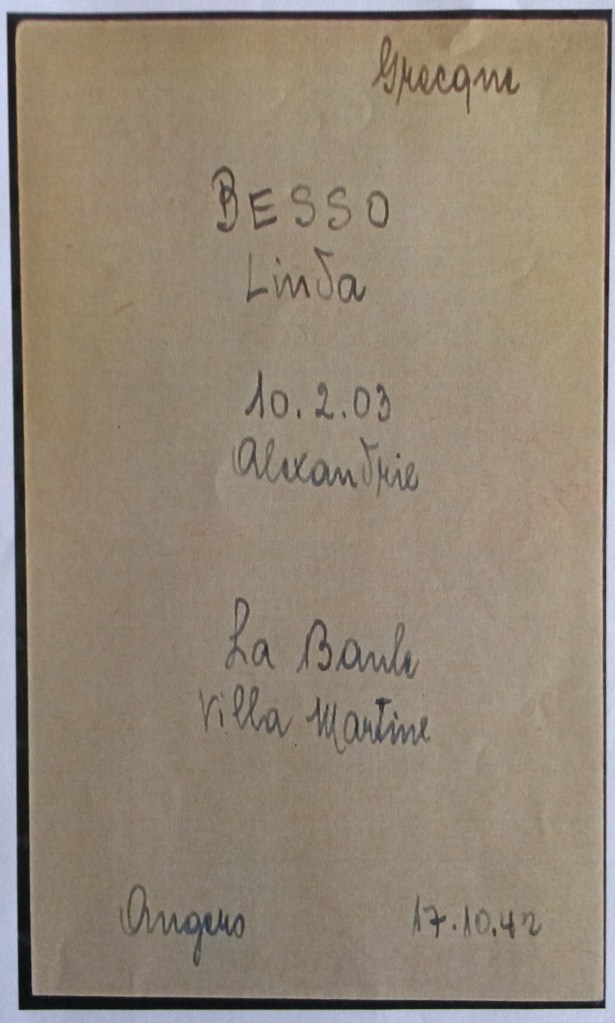 Grecque
BESSO
Linda
10.2.03
Alexandrie
La Baule
Villa Martine
Angers 17.10.42